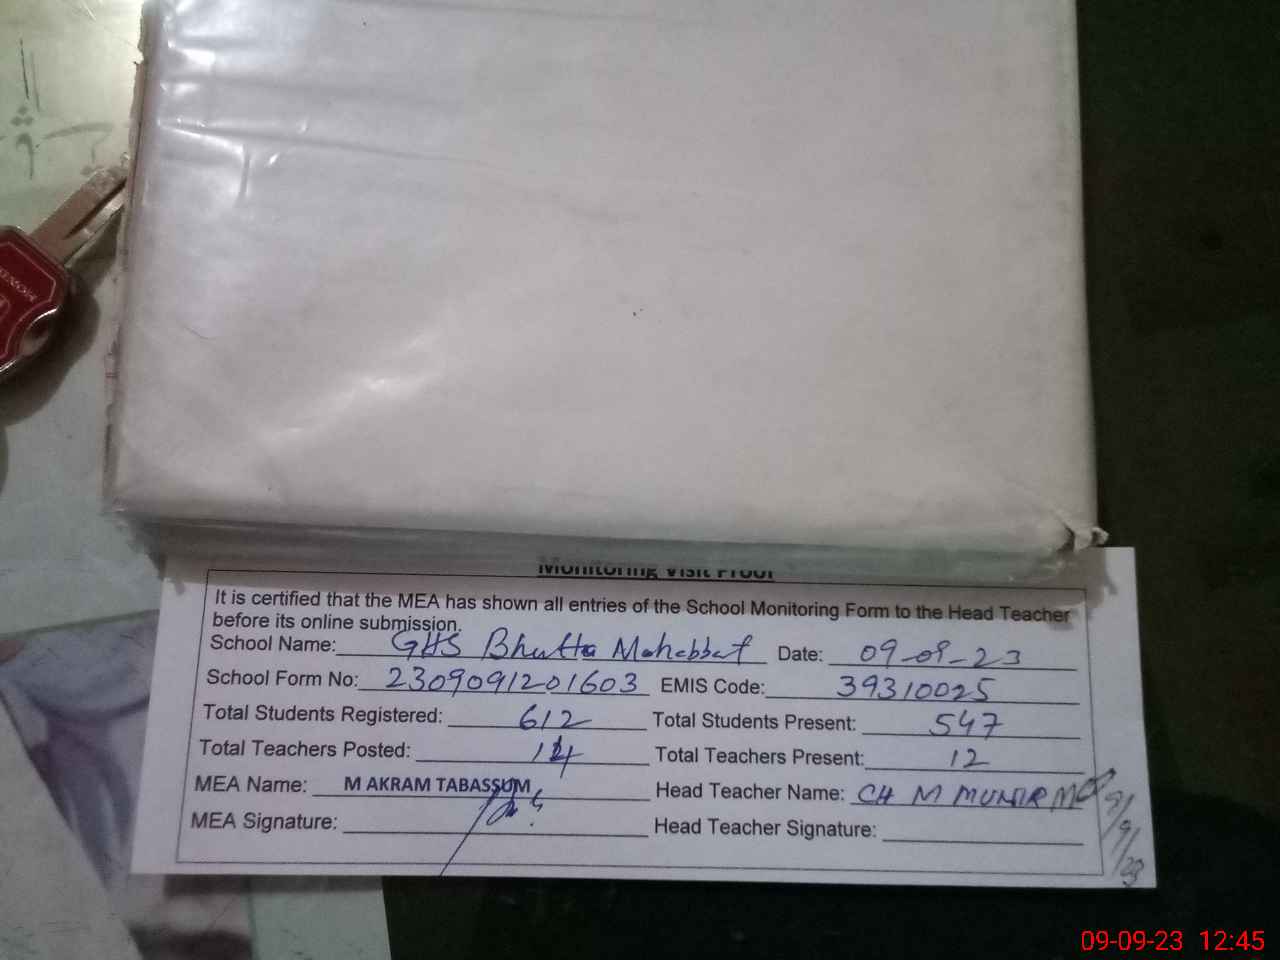 Monitoring Visit Proof
It is certified that the MEA has shown all entries of the School Monitoring Form to the Head Teacher
before its online submission.
School Name: GHS Bhutta Mohabbat Date: 09-09-23
School Form No: 2309091201603 EMIS Code: 39310025
Total Students Registered: 612 Total Students Present: 547
Total Teachers Posted: 14 Total Teachers Present: 12
MEA Name: M AKRAM TABASSUM Head Teacher Name: CH M MUNIR
MEA Signature: Head Teacher Signature:
9/9/23
09-09-23 12:45